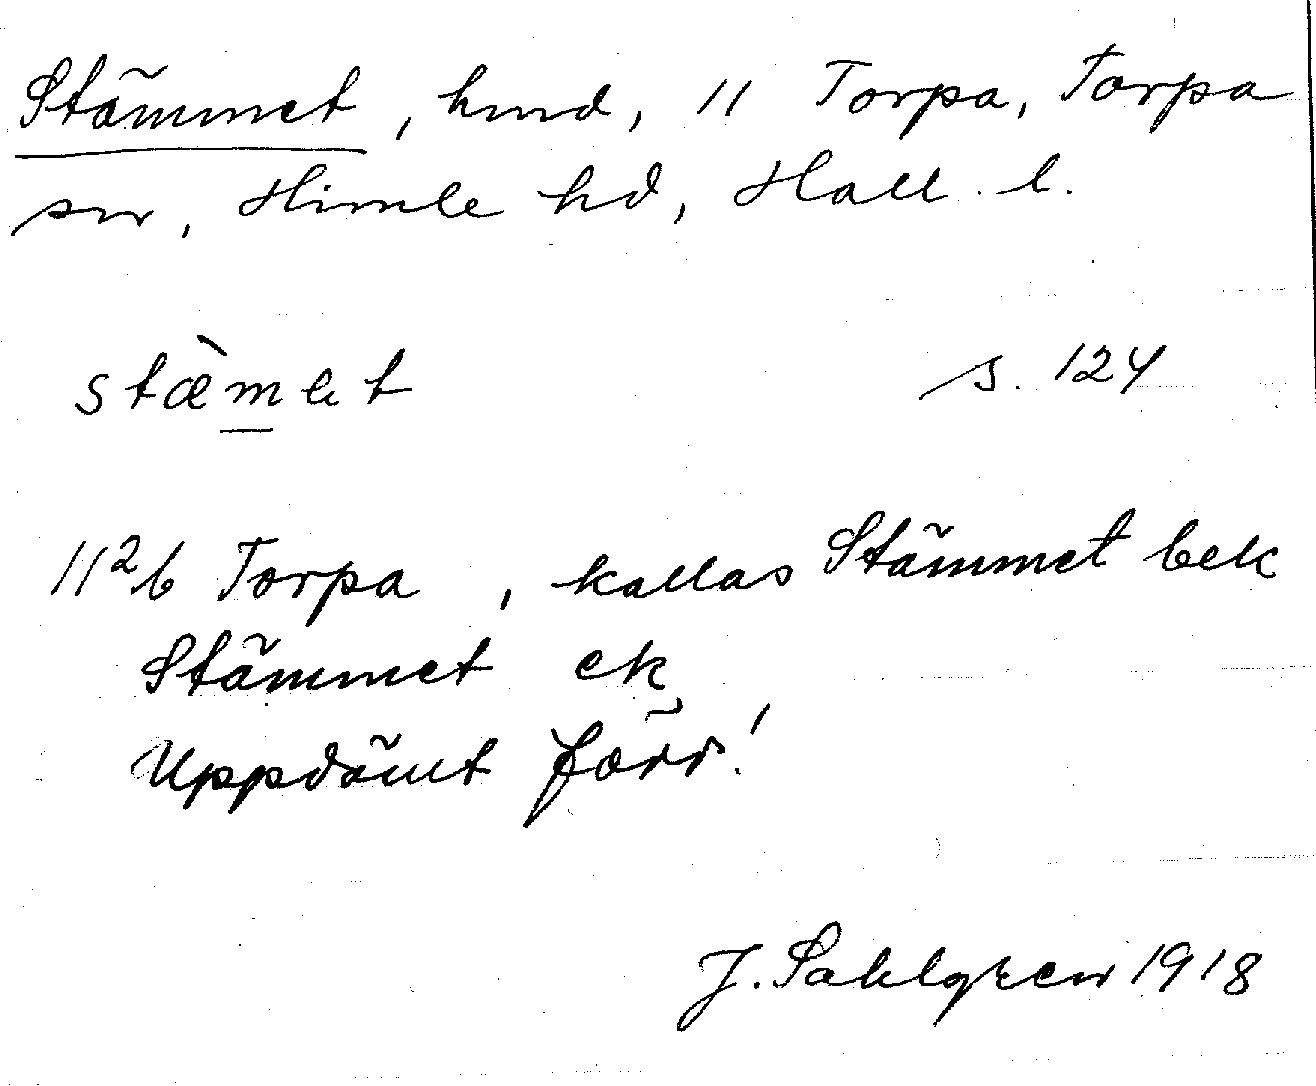 Stämmet, hmd, 11 Torpa, Torpa
sn, Himle hd, Hall. l.
stæ̀m̲et s. 124
11²b Torpa, kallas Stämmet bek
Stämmet ek
Uppdämt förr!
J. Sahlgren 1918